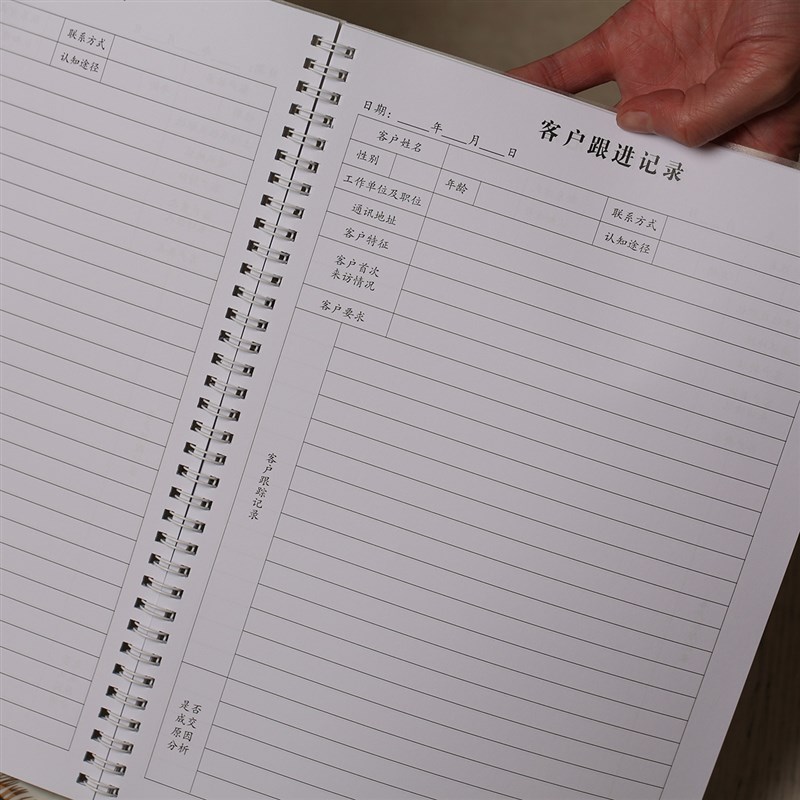 联系方式
认知途径
客户跟进记录
日期：____年____月____日
客户姓名
性别
年龄
联系方式
工作单位及职位
认知途径
通讯地址
客户特征
客户首次
来访情况
客户要求
客户跟踪记录
是否
成交
原因
分析